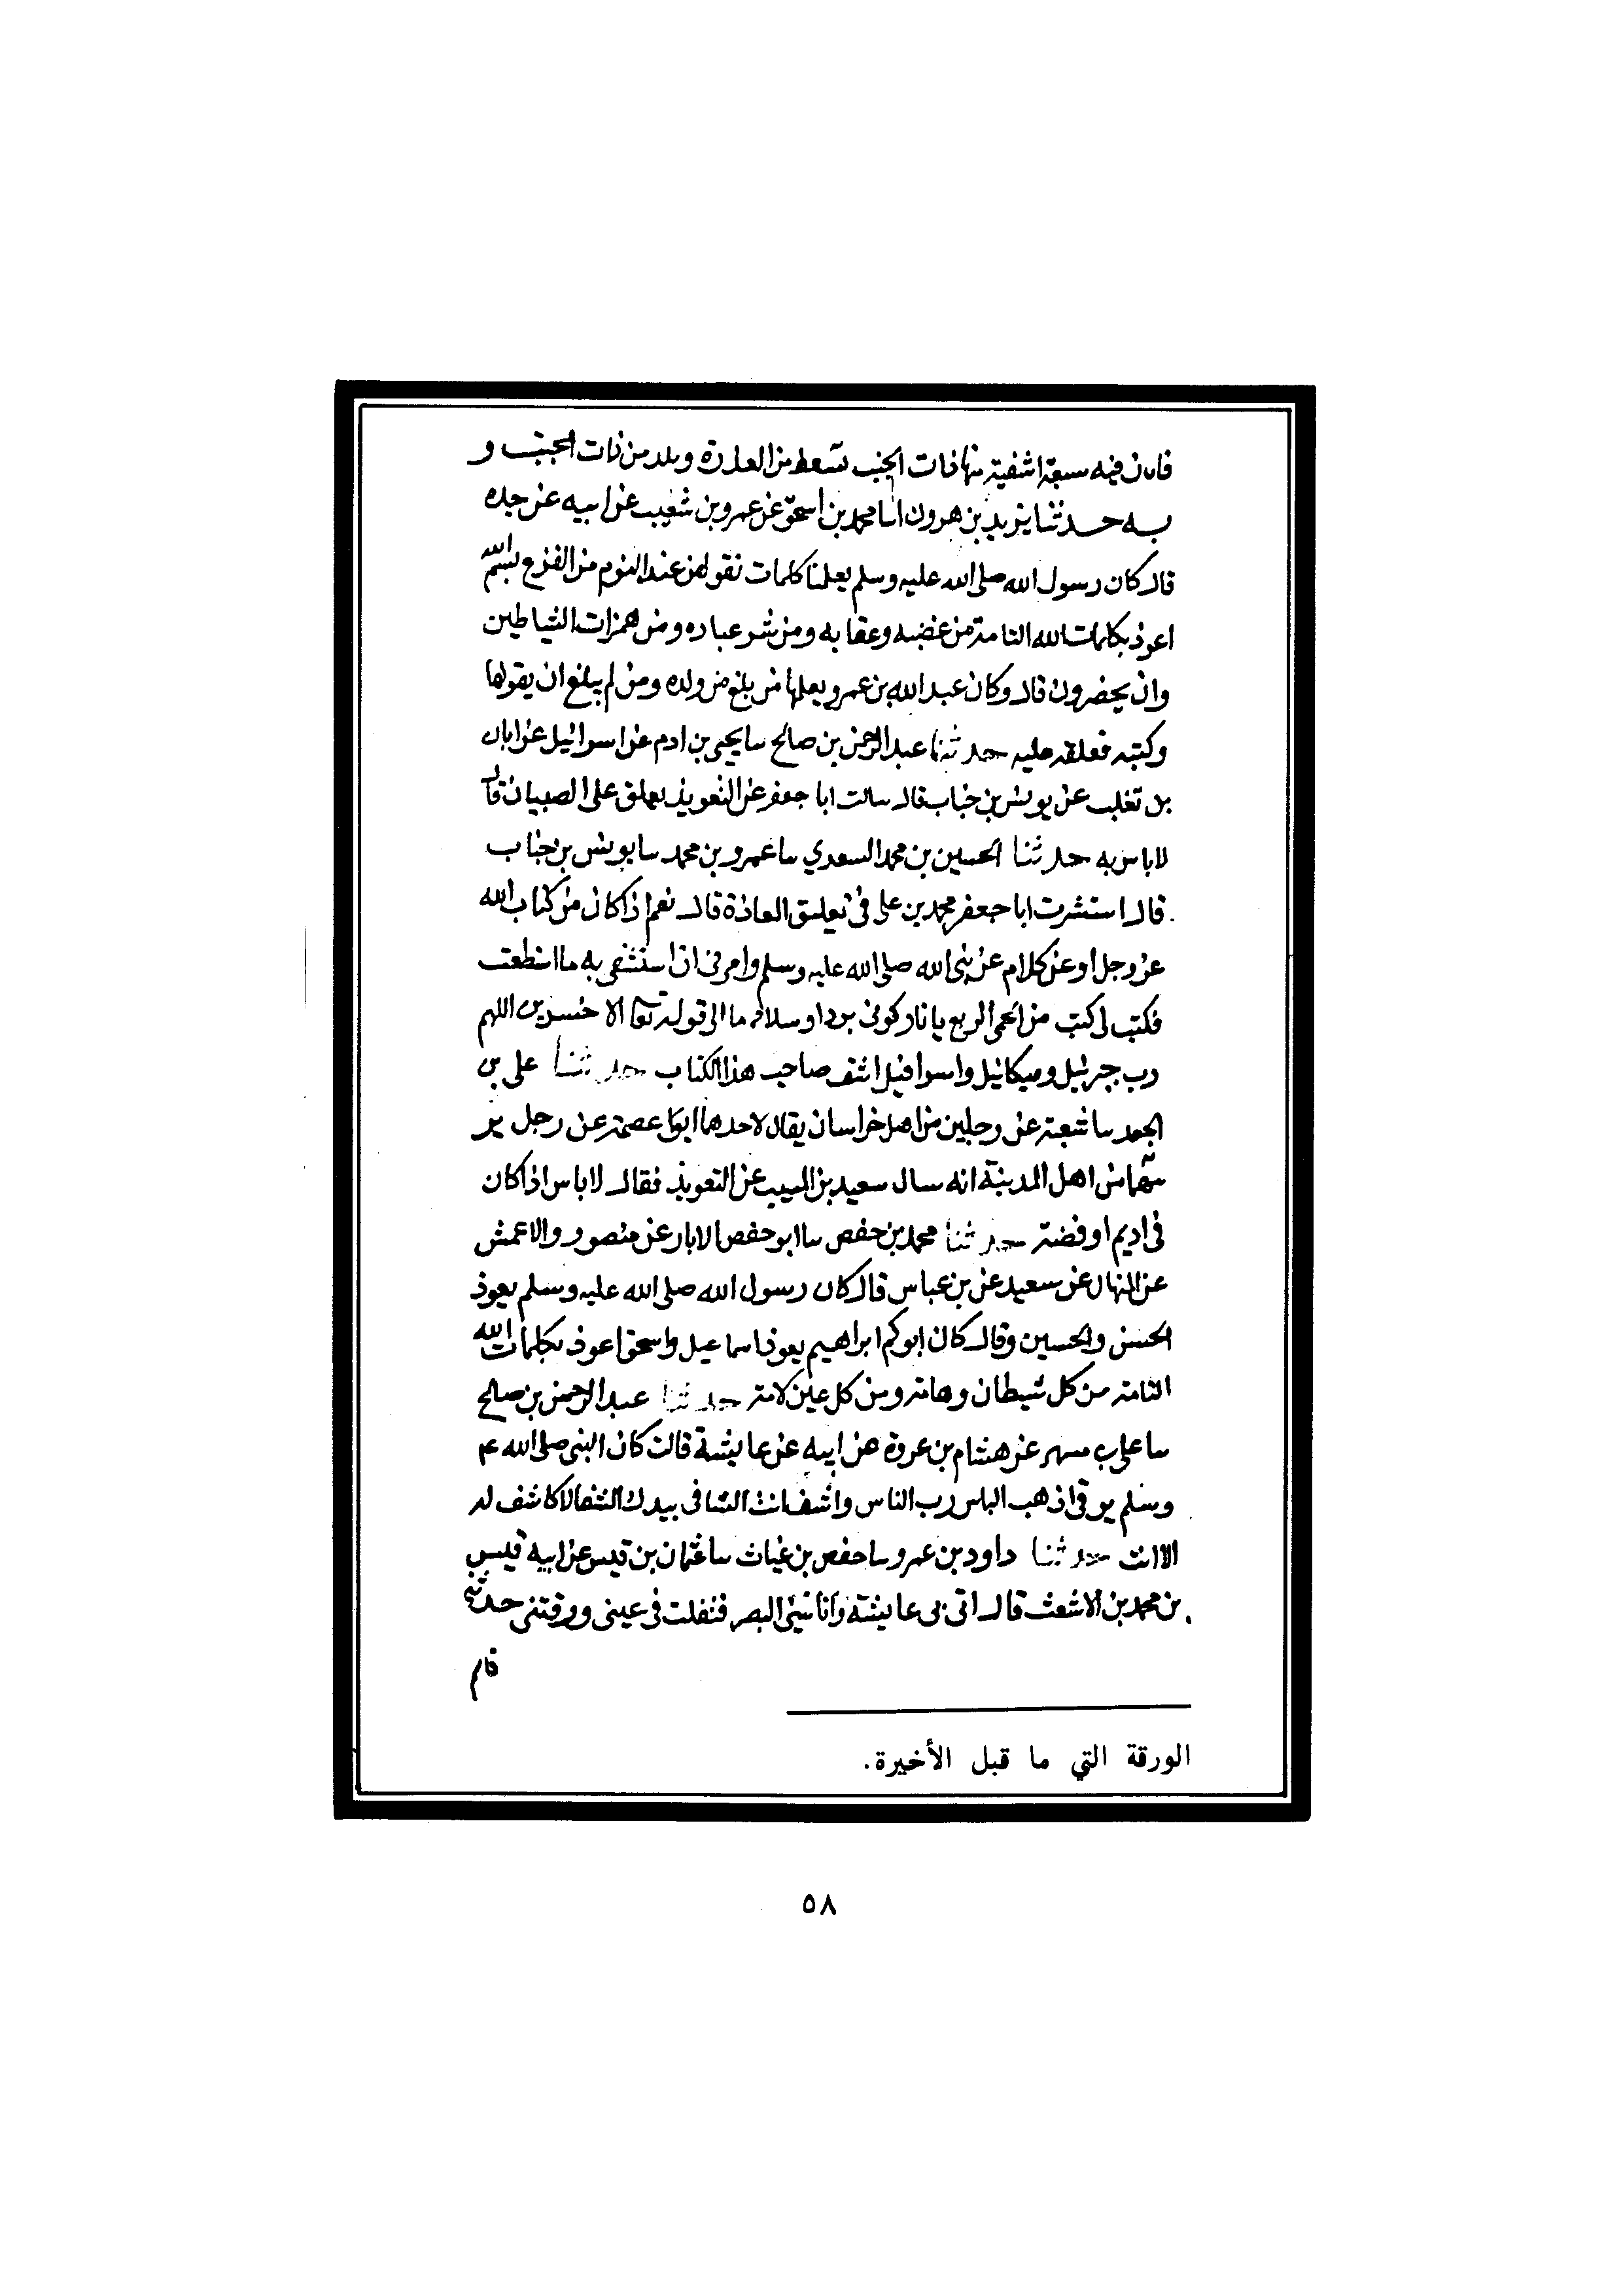 فان فيه سبعة اشفية منها ذات الجنب تسعط من العذرة ويلد من ذات الجنب و
به حدثنا يزيد بن هرون انا محمد بن اسحق عن عمرو بن شعيب عن ابيه عن جده
قال كان رسول الله صلى الله عليه وسلم يعلمنا كلمات نقولهن عند النوم من الفزع بسم الله
اعوذ بكلمات الله التامة من غضبه وعقابه ومن شر عباده ومن همزات الشياطين
وان يحضرون قال وكان عبد الله بن عمرو يعلمها من بلغ من ولده ومن لم يبلغ ان يقولها
وكتبه فعلقه عليه حدثنا عبد الرحمن بن صالح سا يحيى بن ادم عن اسرائيل عن ابان
بن تغلب عن يونس بن خباب قال سالت ابا جعفر عن التعويذ يعلق على الصبيان قال
لا باس به حدثنا الحسين بن محمد السعدي سا عمرو بن محمد سا يونس بن خباب
قال استشرت ابا جعفر محمد بن علي في تعليق العاذة قال نعم اذا كان من كتاب الله
عز وجل او عن كلام عن نبي الله صلى الله عليه وسلم وامرني ان استشفي به ما استطعت
فكتب لي كتب من الحمى الربع يا نار كوني بردا وسلاما الى قوله تعا الاخسرين اللهم
رب جبرئيل وميكائيل واسرافيل اشف صاحب هذا الكتاب حدثنا علي بن
الجعد سا شعبة عن رجلين من اهل خراسان يقال لاحدهما ابو عصمة عن رجل
من اهل المدينة انه سال سعيد بن المسيب عن التعويذ فقال لا باس اذا كان
في اديم او فضة حدثنا محمد بن حفص سا ابو حفص الابار عن منصور والاعمش
عن المنهال عن سعيد عن بن عباس قال كان رسول الله صلى الله عليه وسلم يعوذ
الحسن والحسين وقال كان ابوكم ابراهيم يعوذ اسماعيل واسحق اعوذ بكلمات الله
التامة من كل شيطان وهامة ومن كل عين لامة حدثنا عبد الرحمن بن صالح
سا علي بن مسهر عن هشام بن عروة عن ابيه عن عايشة قالت كان النبي صلى الله ع
وسلم يرقي اذهب الباس رب الناس واشف انت الشافي بيدك الشفا لا كاشف له
الا انت حدثنا داود بن عمرو سا حفص بن غياث سا عثمان بن قيس عن ابيه قيس
بن محمد بن الاشعث قال اتي بي عايشة وانا شيئ البصر فتفلت في عيني ورقتني حدثنا
قاسم
الورقة التي ما قبل الأخيرة.
٥٨